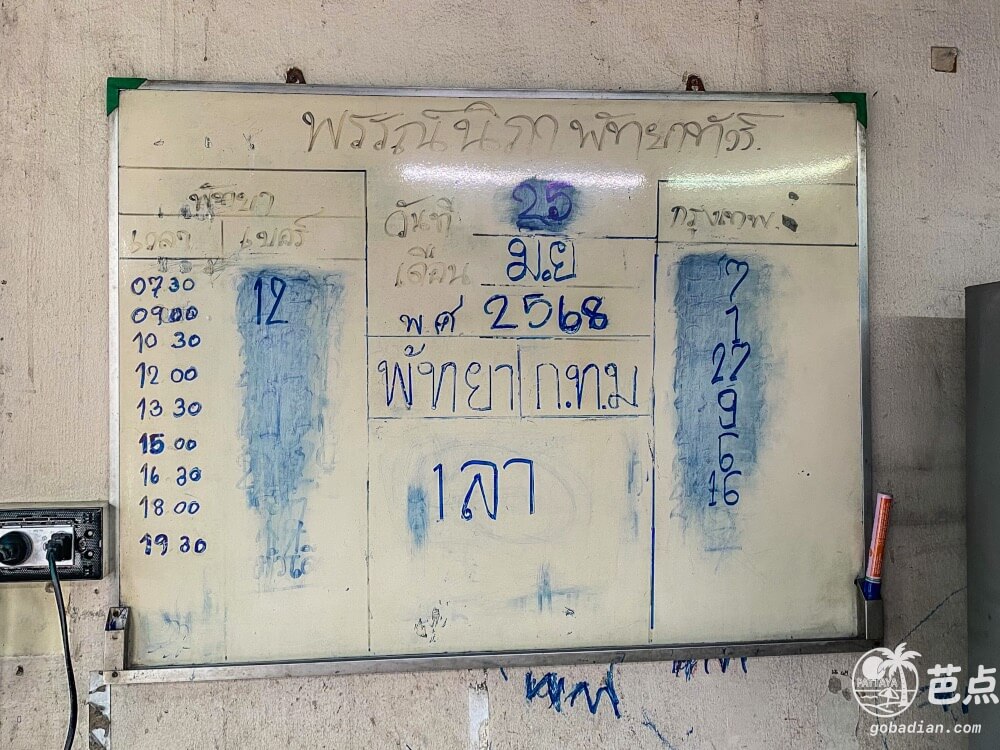 พรรณนิภา พัทยาทัวร์
พัทยา
เวลา เบอร์
0730 12
0900
10 30
12 00
13 30
15 00
16 30
18 00
19 30
วันที่ 25
เดือน ม.ย
พ.ศ 2568
พัทยา ก.ท.ม
1 ลา
กรุงเทพ
7
1
27
9
6
16
PATTAYA
芭点
gobadian.com